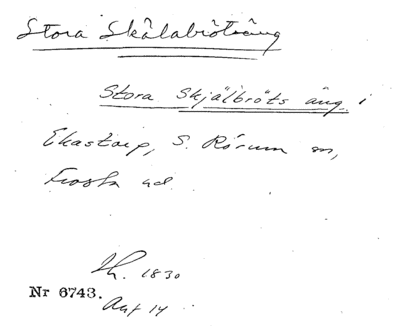 Stora Skålabrötsäng
Stora Skjälbröts äng i
Ekastorp, S. Rörum sn,
Frosta hd
Lh. 1830
Nr 6743.
Aug 14